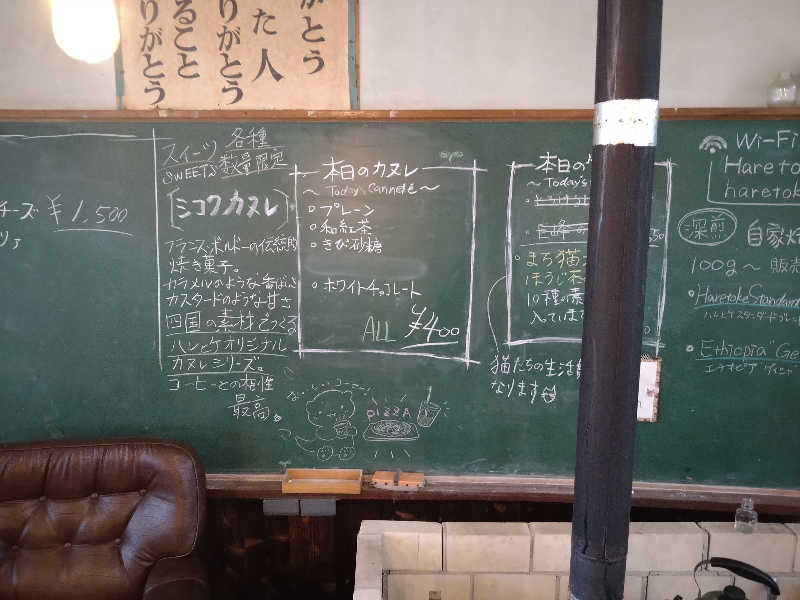 がとう
た人
りがとう
ること
りがとう
チーズ ¥1,500
スイーツ 各種
SWEETS 数量限定
[シコクカヌレ]
フランス・ボルドーの伝統的
焼き菓子。
カラメルのような香ばしさ
カスタードのような甘さ
四国の素材でつくる
ハレとケオリジナル
カヌレシリーズ。
コーヒーとの相性
最高。
本日のカヌレ
〜Today Cannelé〜
○プレーン
○和紅茶
○きび砂糖
○ホワイトチョコレート
ALL ¥400
PIZZA
本日の
〜Today's
まち猫
ほうじ茶
10種の素
入っていま
猫たちの生活
なります
Wi-Fi
Hareto
haretok
深煎 自家焙
100g〜 販売
Haretoke Standard
ハレとケスタンダードブレンド
Ethiopia "Ge
エチオピア